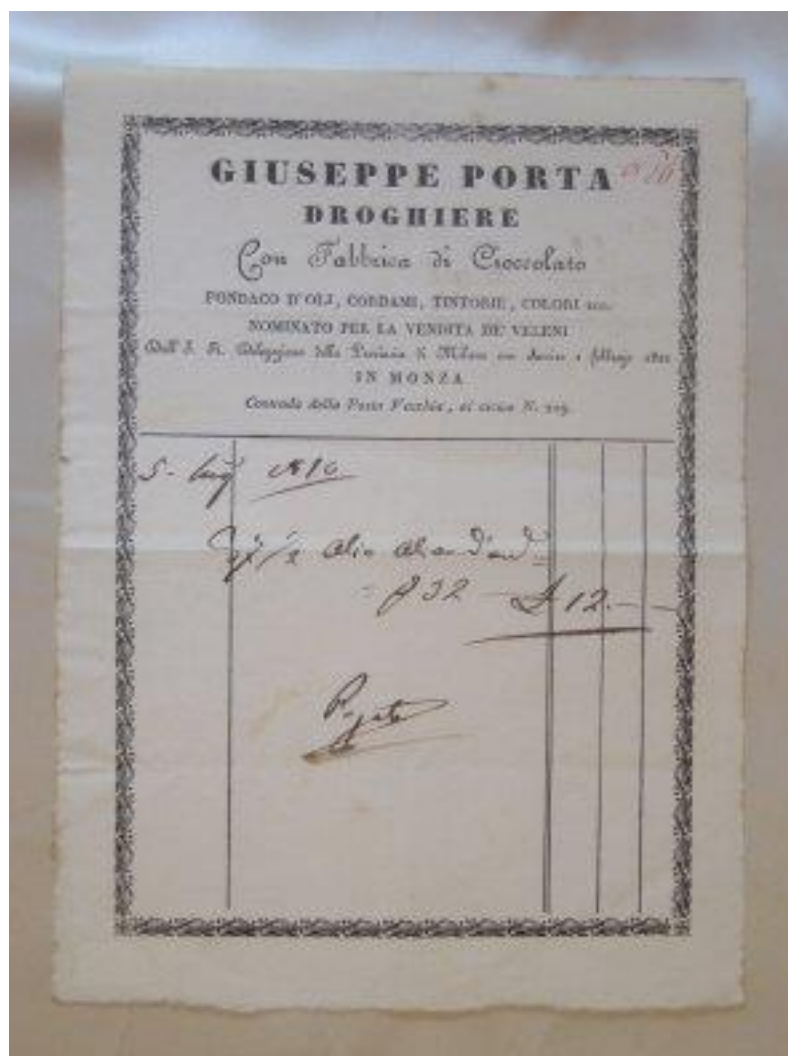 GIUSEPPE PORTA
DROGHIERE
Con Fabbrica di Cioccolato
FONDACO D'OLJ, CORDAMI, TINTORIE, COLORI ecc.
NOMINATO PER LA VENDITA DE' VELENI
Dall' I. R. Delegazione della Provincia di Milano con Decreto 1
IN MONZA
Contrada della Posta Vecchia, al civico N.
5- 
olio
32 - 12.-
Pagato